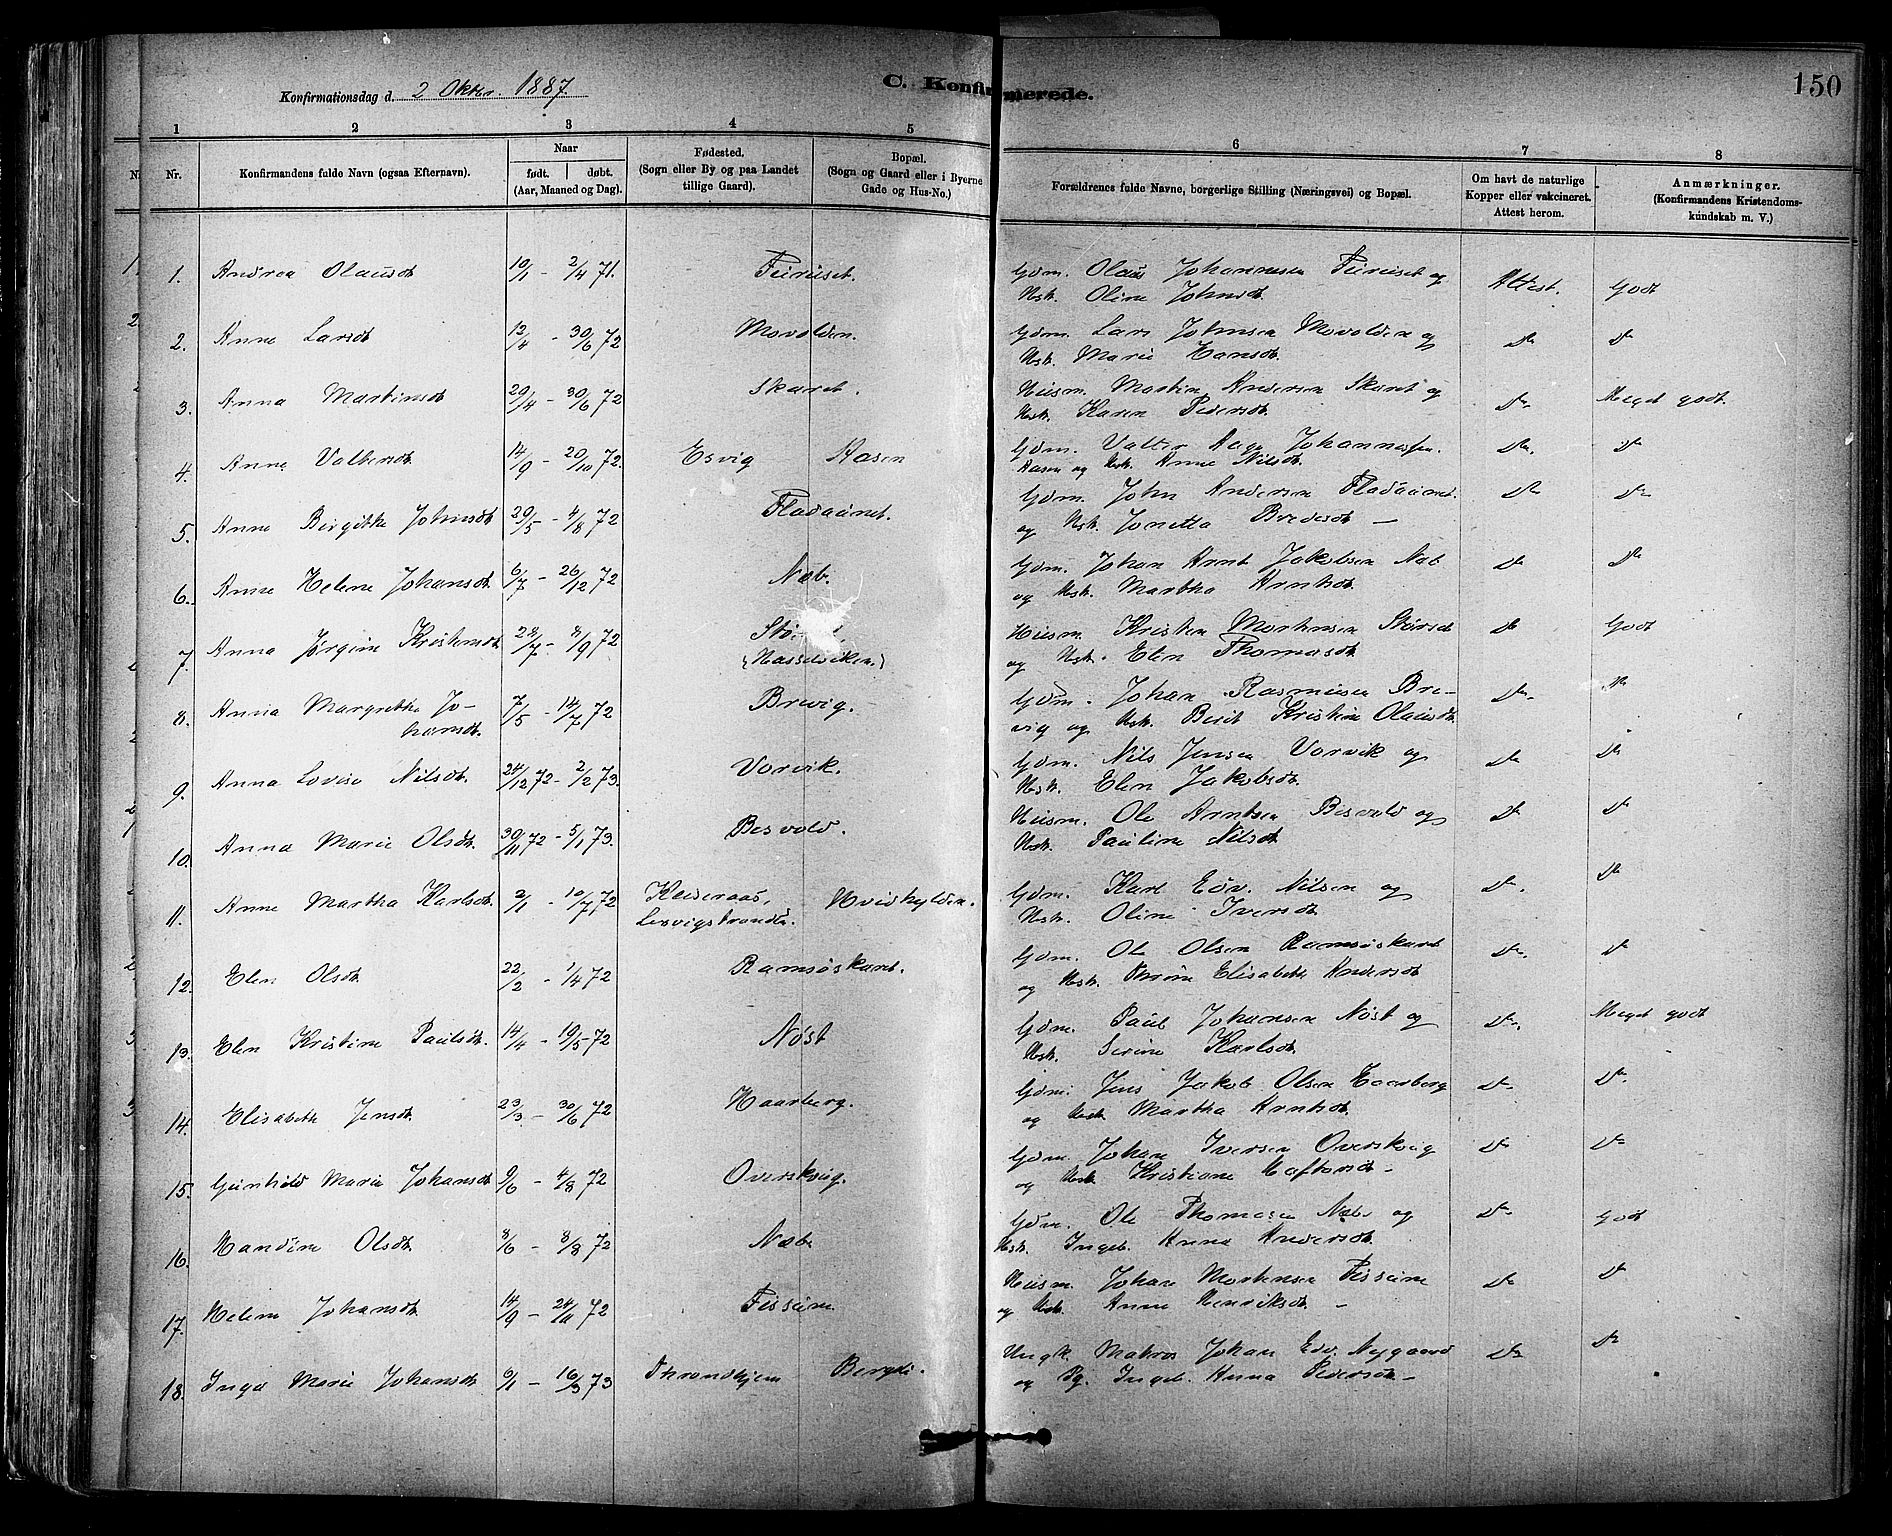 Konfirmationsdag d. 2 Oktbr. 1887.
C. Konfirmerede.
150
1 2 3 4 5 6 7 8
Nr.
Konfirmandens fulde Navn (ogsaa Efternavn).
Naar
født. døbt.
(Aar, Maaned og Dag).
Fødested.
(Sogn eller By og paa Landet
tillige Gaard).
Bopæl.
(Sogn og Gaard eller i Byerne
Gade og Hus-No.)
Forældrenes fulde Navne, borgerlige Stilling (Næringsvei) og Bopæl.
Om havt de naturlige
Kopper eller vakcineret.
Attest herom.
Anmærkninger.
(Konfirmandens Kristendoms-
kundskab m. V.)
1. Andrea Olausdt. 10/1 - 2/4 71. Gdm. Olaus Johannesen og
Hstr. Oline Johnsdt. Attest. Godt
2. Anne Larsdt 12/4 - 30/6 72 Movolden. Gdm. Lars Johnsen Movolden og
Hstr. Marie Hansdt. Do Do
3. Anna Martinsdt 20/4 - 30/6 72 Skaret. Husm. Martin Andersen Skaret og
Hstr. Karen Pedersdt. Do Meget godt.
4. Anna Valtersdt 14/9 - 20/10 72. Esvig Aasen Gdm. Valter Aage Johannessen
Aasen og Hstr. Anne Nilsdt. Do Do
5. Anne Birgitte Johnsdt 20/5 - 4/8 72 Gdm. John Andersen
og Hstr. Jonetta Bredesdt — Do Do
6. Anne Helene Johansdt. 6/7 - 26/12 72 Næb. Gdm. Johan Arnt Jakobsen Næb
og Hstr. Martha Arntsdt. Do Do
7. Anna Jørgine Kristensdt 28/7 - 8/9 72
(Hasselviken.) Husm. Kristen Mortensen Størset
og Hstr. Elen Thomasdt. Do Godt
8. Anna Margrethe Jo-
hansdt. 7/5 - 14/7 72 Brevig. Gdm. Johan Rasmusen Bre-
vig og Hstr. Berit Kristine Olausdt. Do Do
9. Anna Lovise Nilsdt. 24/12 72 - 2/2 73. Vorvik. Gdm. Nils Jensen Vorvik og
Hstr. Elen Jakobsdt. Do Do
10. Anna Marie Olsdt. 30/11 72 - 5/1 73. Besvold. Husm. Ole Arntsen Besvold og
Hstr. Pauline Nilsdt Do Do
11. Anne Martha Karlsdt. 2/1 - 10/7 72 Hvidkylden. Gdm. Karl Edv. Nilsen og
Hstr. Oline Iversdt. Do Do
12. Elen Olsdt. 22/2 - 1/4 72 Ramsøskaret. Gdm. Ole Olsen Ramsøskaret
og Hstr. Elisabeth Andersdt Do Do
13. Elen Kristine Paulsdt. 14/4 - 19/5 72 Nøst Gdm. Paul Johansen Nøst og
Hstr. Serine Karlsdt. Do Meget godt
14. Elisabeth Jensdt. 23/3 - 30/6 72 Haarberg. Gdm. Jens Jakob Olsen Haarberg
og Hstr. Martha Arntsdt. Do Do
15. Gunhild Marie Johansdt 9/6 - 4/8 72 Overskvig. Gdm. Johan Iversen Overskvig
og Hstr. Kristiane Haftorsdt — Do Do
16. Handine Olsdt. 8/6 - 8/8 72 Næb. Gdm. Ole Thomesen Næb og
Hstr. Ingeb. Anna Andersdt. Do Godt
17. Helene Johansdt. 14/9 - 24/11 72 Fissum. Husm. Johan Mortensen Fissum
og Hstr. Anne Henriksdt. — Do Do
18. Inga Marie Johansdt. 6/1 - 16/3 73 Throndhjem Bergli. Ungk. Matros Johan Edv. Nygaard
og Pg. Ingeb. Anna Pedersdt. — Do Do